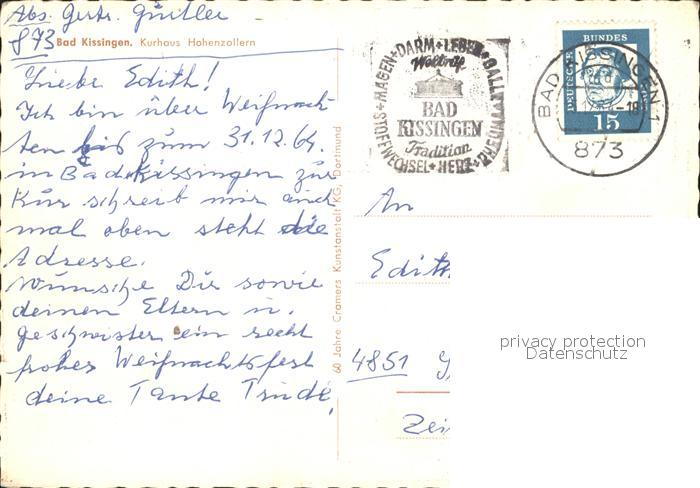 Abs. Gertr. Günther
873 Bad Kissingen. Kurhaus Hohenzollern
Liebe Edith!
Ich bin über Weihnach-
ten bis zum 31.12.64.
in Bad Kissingen zur
Kur schreib mir auch
mal oben steht die
Adresse.
Wünsche Dir sowie
deinen Eltern u.
Geschwister ein recht
frohes Weihnachtsfest
deine Tante Trude.
60 Jahre Cramers Kunstanstalt KG, Dortmund
MAGEN+DARM+LEBER+GALLE
RHEUMA
STOFFWECHSEL+HERZ
Weltruf
BAD
KISSINGEN
Tradition
DEUTSCHE BUNDES
15
BAD KISSINGEN 1
-18
873
An
Edith
4851
privacy protection
Datenschutz